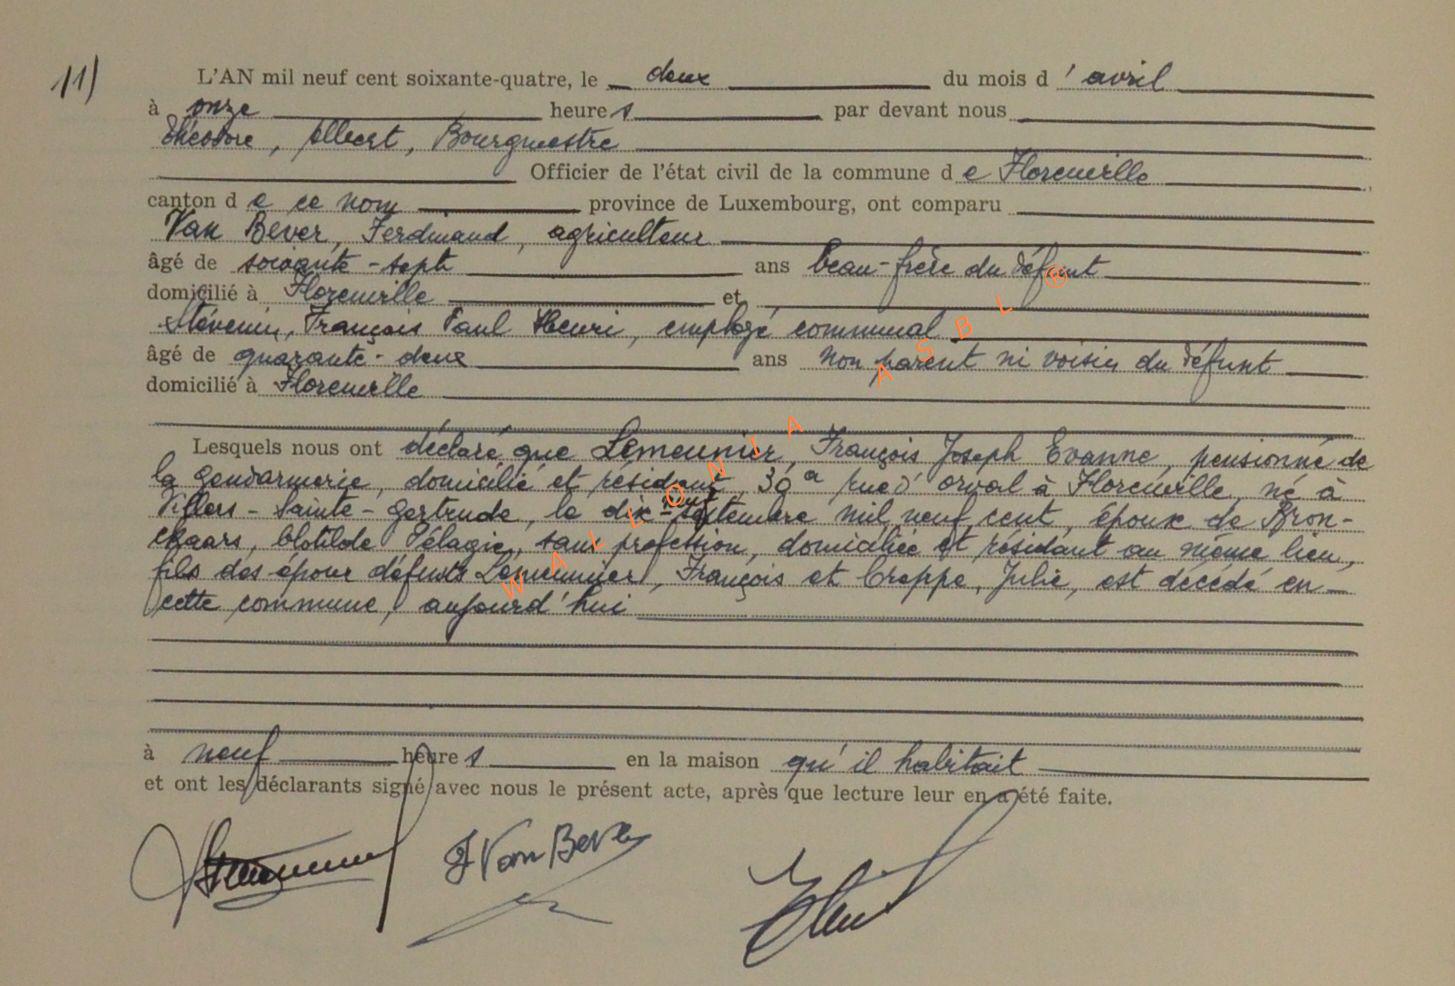 11) L'AN mil neuf cent soixante-quatre, le deux du mois d'avril
à onze heures par devant nous
Théodore, Albert, Bourgmestre
Officier de l'état civil de la commune de Florenville
canton de ce nom province de Luxembourg, ont comparu
Van Bever, Ferdinand, agriculteur
âgé de soixante-sept ans beau-frère du défunt
domicilié à Florenville et
Stévenin, François Paul Henri, employé communal
âgé de quarante-deux ans non parent ni voisin du défunt
domicilié à Florenville
Lesquels nous ont déclaré que Lemeunier, François Joseph Evanne, pensionné de
la gendarmerie, domicilié et résidant, 39a rue d'orval à Florenville, né à
Villers-Sainte-Gertrude, le dix-septembre mil neuf cent, époux de Bron-
ckaars, Clotilde Pélagie, sans profession, domiciliée et résidant au même lieu,
fils des époux défunts Lemeunier, François et Creppe, Julie, est décédé en
cette commune, aujourd'hui
à neuf heures en la maison qu'il habitait
et ont les déclarants signé avec nous le présent acte, après que lecture leur en a été faite.
F Van Bever
WALLONIA ASBL ®